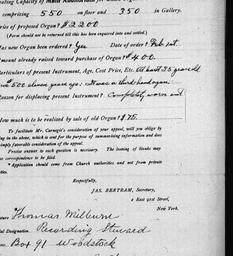 comprising 550 on floor and 350 in Gallery.
Price of proposed Organ? $2200
(Form should not be returned till this has been enquired into and settled.)
Has one Organ been ordered? Yes Date of order? Feb 1st.
Amount already raised toward purchase of Organ? $400
Particulars of present Instrument, Age, Cost Price, Etc. At least 35 years old
Reason for displacing present Instrument? Completely worn out
How much is to be realized by sale of old Organ? $75.
To facilitate Mr. Carnegie's consideration of your appeal, will you oblige by
filling in the above, which is sent for the purpose of summarizing information and does not
imply favorable consideration of the appeal.
Precise answer to each question is necessary. The issuing of blanks may
be correspondence to be filed.
* Application should come from Church authorities and not from private
parties.
Respectfully,
JAS. BERTRAM, Secretary,
2 East 91st Street,
New York.
Thomas Milburn
Official Designation. Recording Steward
Box 91 Woodstock